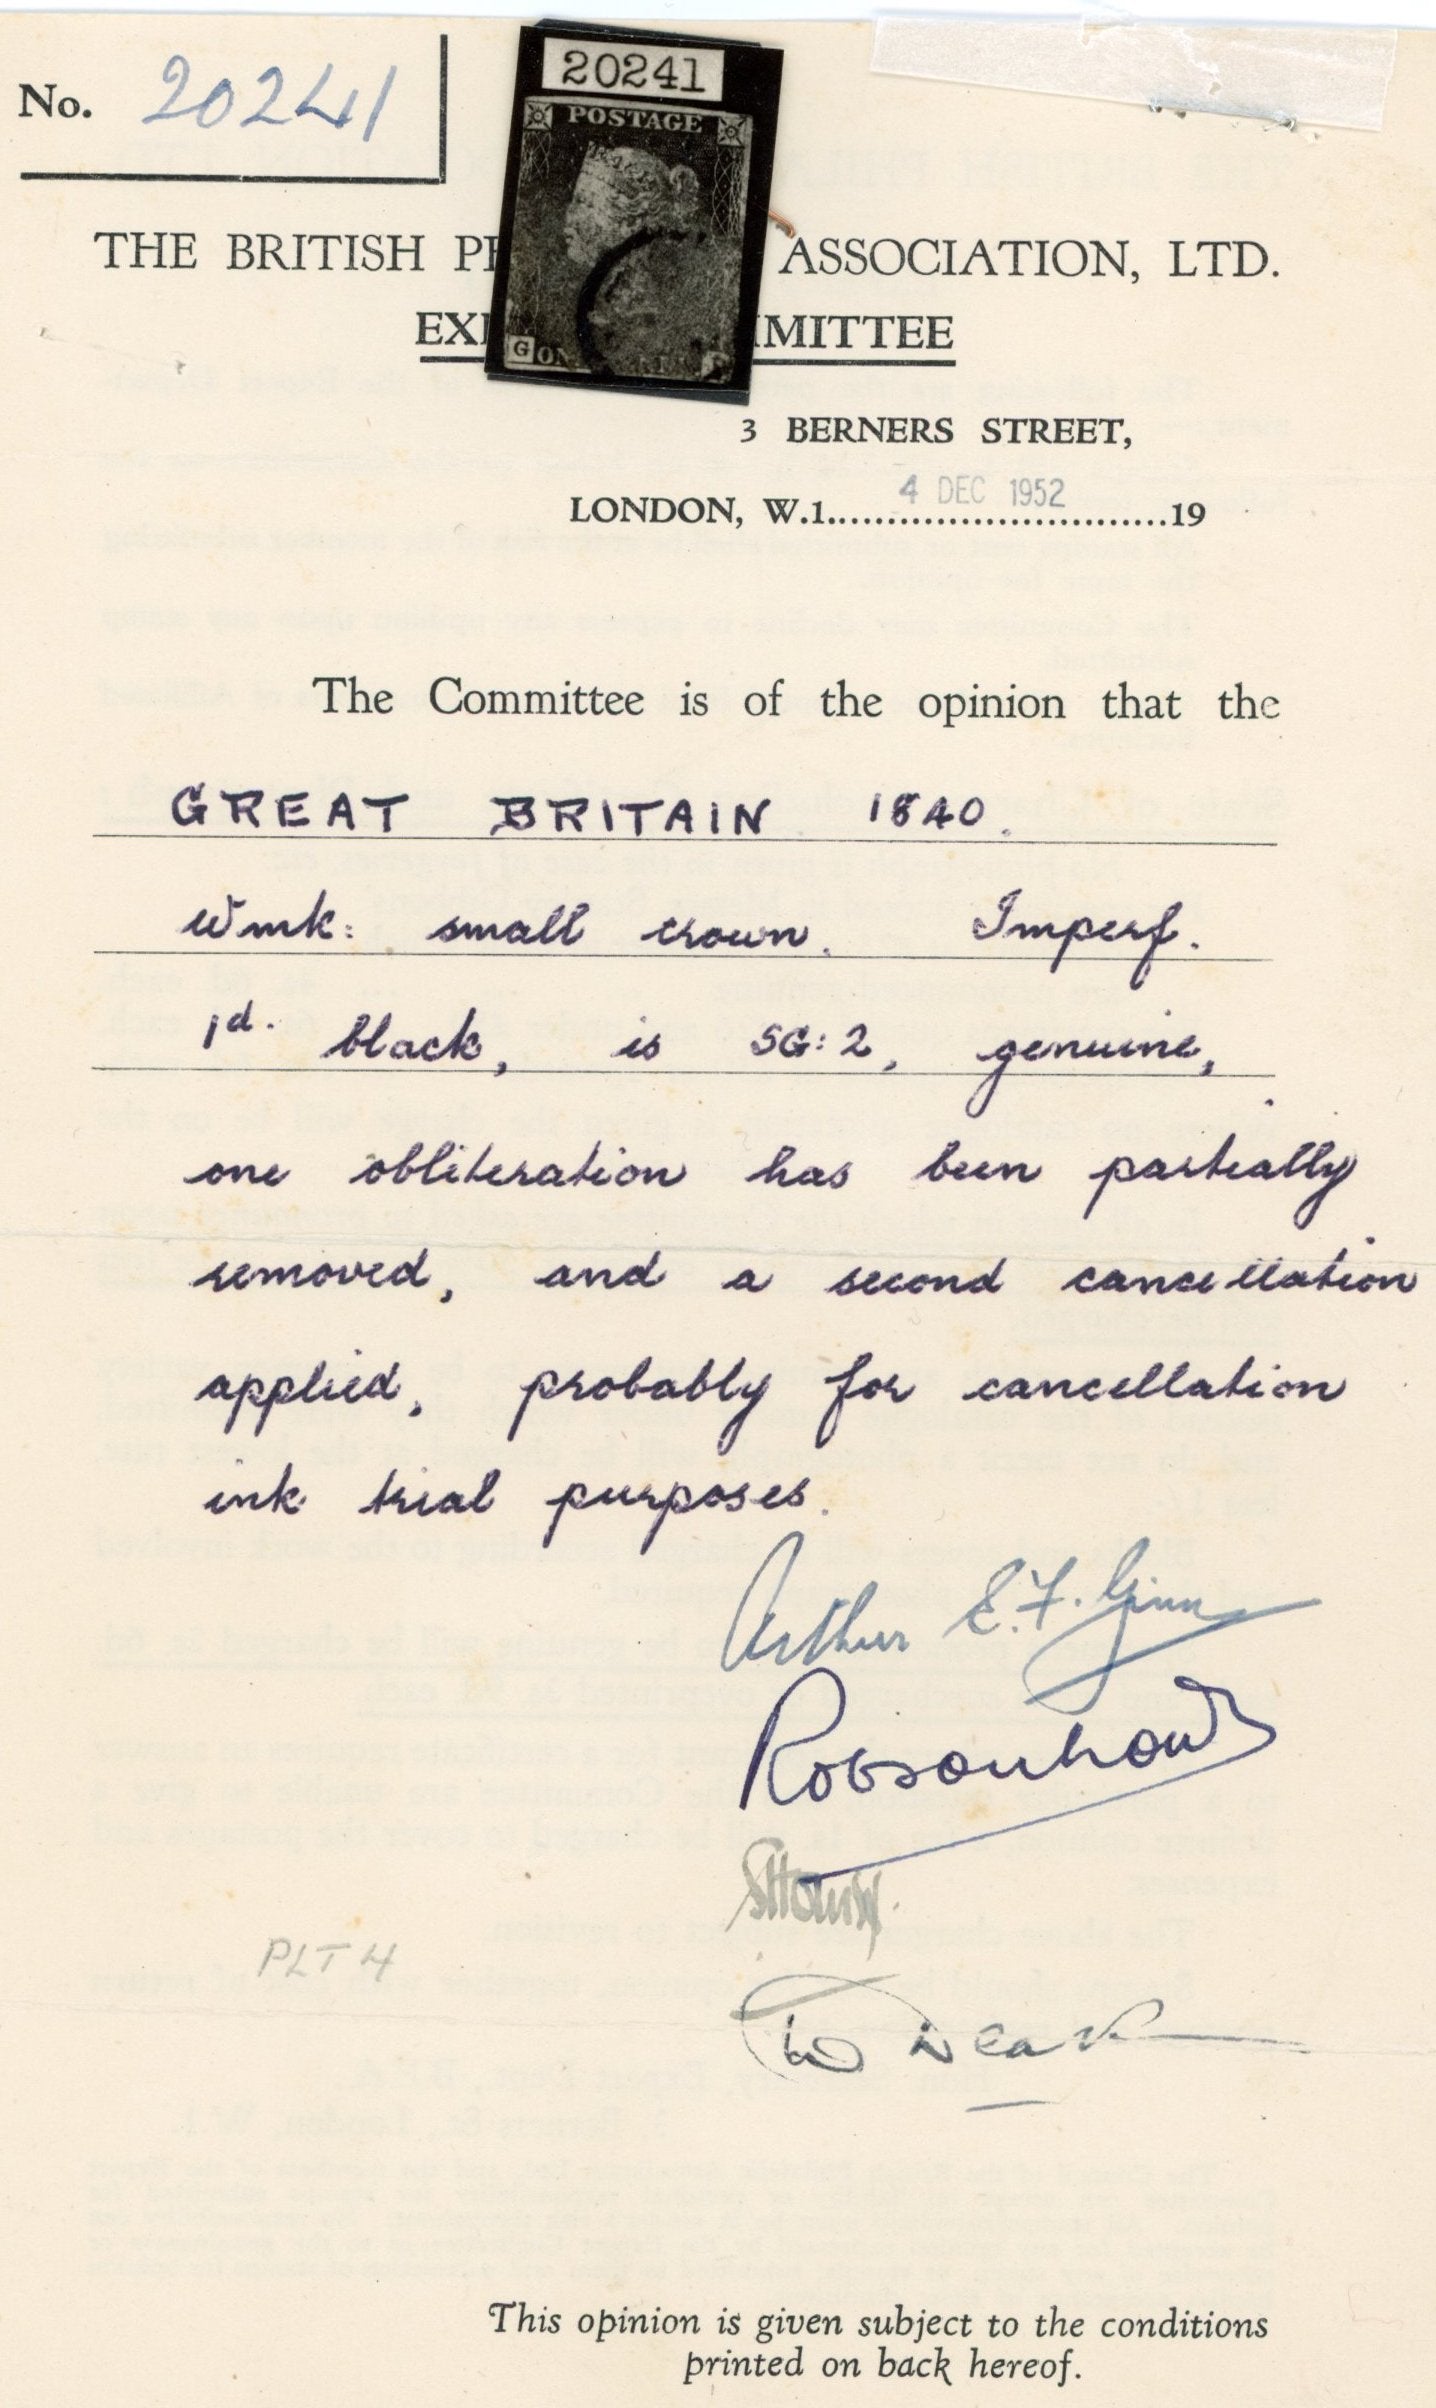 No. 20241
20241
POSTAGE
G ON
THE BRITISH ASSOCIATION, LTD.
3 BERNERS STREET,
4 DEC 1952
LONDON, W.1..............................19
The Committee is of the opinion that the
GREAT BRITAIN 1840.
Wmk: small crown. Imperf.
1d. black, is SG:2, genuine,
one obliteration has been partially
removed, and a second cancellation
applied, probably for cancellation
ink trial purposes.
Arthur E.F. Ginn
Robsonlowe
PLT 4
This opinion is given subject to the conditions
printed on back hereof.